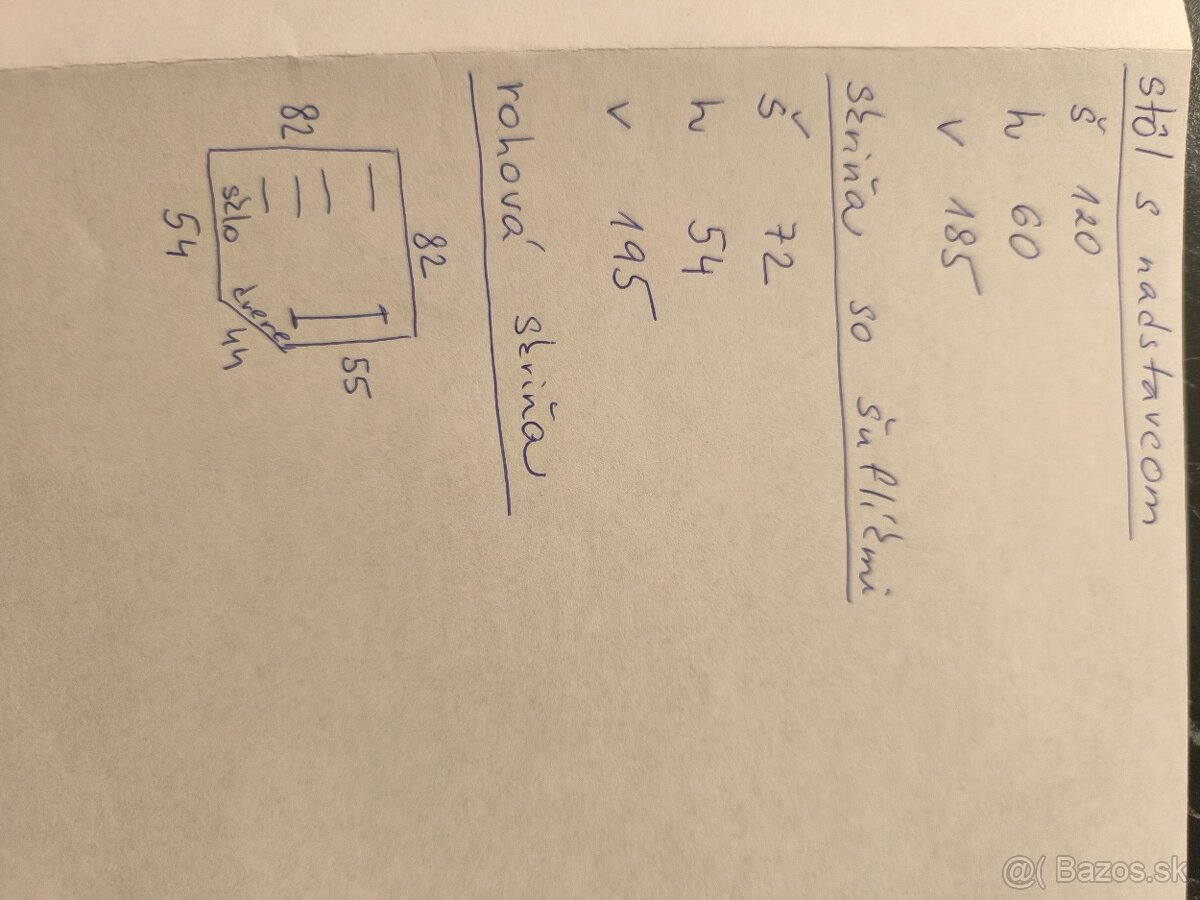 stôl s nadstavcom
š 120
h 60
v 185
skriňa so šuflíkmi
š 72
h 54
v 195
rohová skriňa
82
82
55
sklo
dvere
44
54
@( Bazos.sk